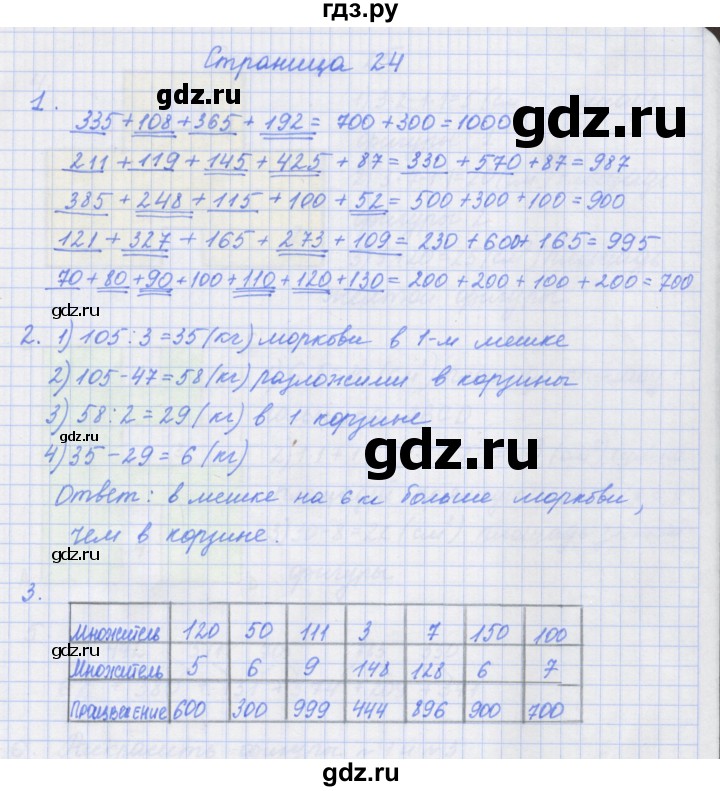 гдз.ру
Страница 24
gdz.ru
gdz.ru
1.
335 + 108 + 365 + 192 = 700 + 300 = 1000
211 + 119 + 145 + 425 + 87 = 330 + 570 + 87 = 987
385 + 248 + 115 + 100 + 52 = 500 + 300 + 100 = 900
121 + 327 + 165 + 273 + 109 = 230 + 600 + 165 = 995
70 + 80 + 90 + 100 + 110 + 120 + 130 = 200 + 200 + 100 + 200 = 700
gdz.ru
2. 1) 105 : 3 = 35 (кг) моркови в 1-м мешке
2) 105 - 47 = 58 (кг) разложили в корзины
3) 58 : 2 = 29 (кг) в 1 корзине
gdz.ru
gdz.ru
4) 35 - 29 = 6 (кг)
Ответ: в мешке на 6 кг больше моркови,
чем в корзине.
gdz.ru
3.
Множитель 120 50 111 3 7 150 100
gdz.ru
Множитель 5 6 9 148 128 6 7
Произведение 600 300 999 444 896 900 700
gdz.ru
gdz.ru